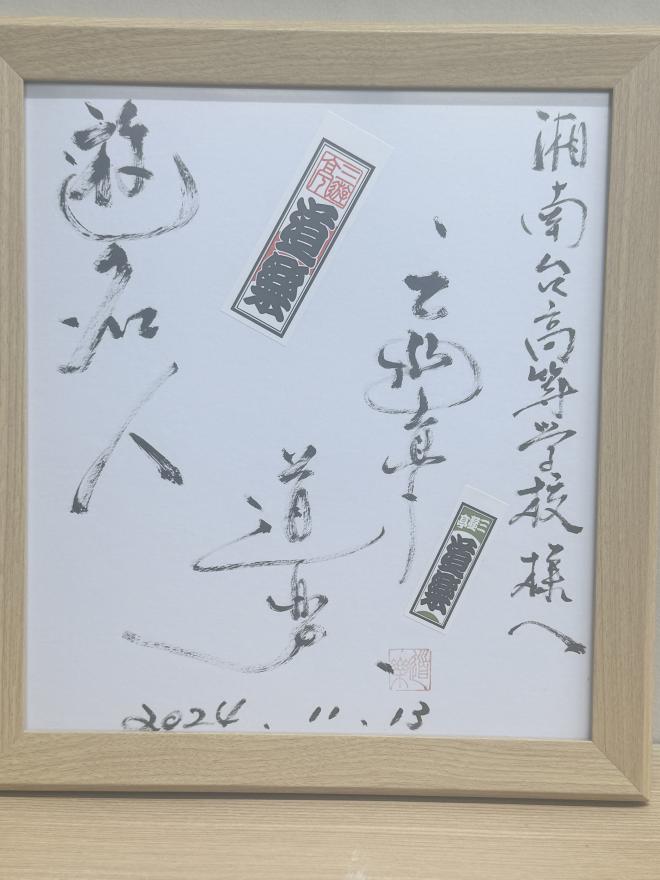 湘南台高等学校様へ
三遊亭
道楽
遊名人
三遊亭
道楽
三遊亭
道楽
道楽
2024.11.13